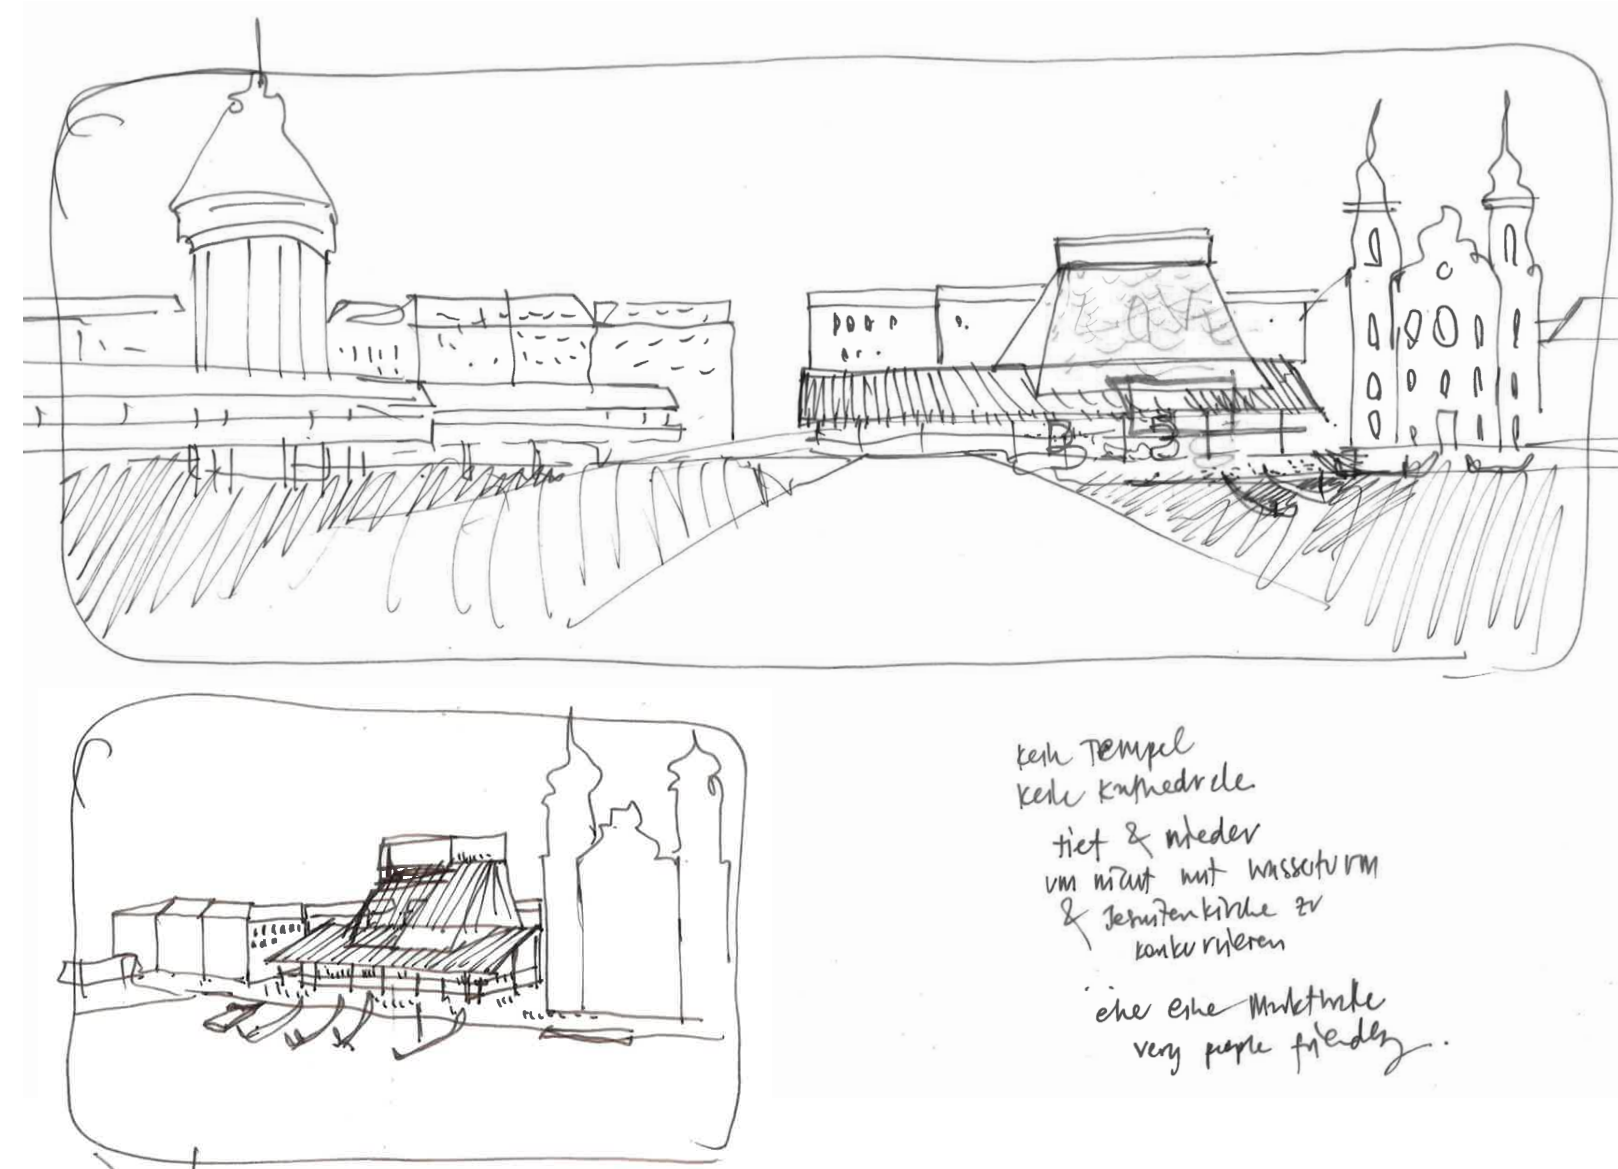 kein Tempel
keine Kathedrale
tief & nieder
um nicht mit Wasserturm
& Jesuitenkirche zu
konkurrieren
eher eine Markthalle
very people friendly.